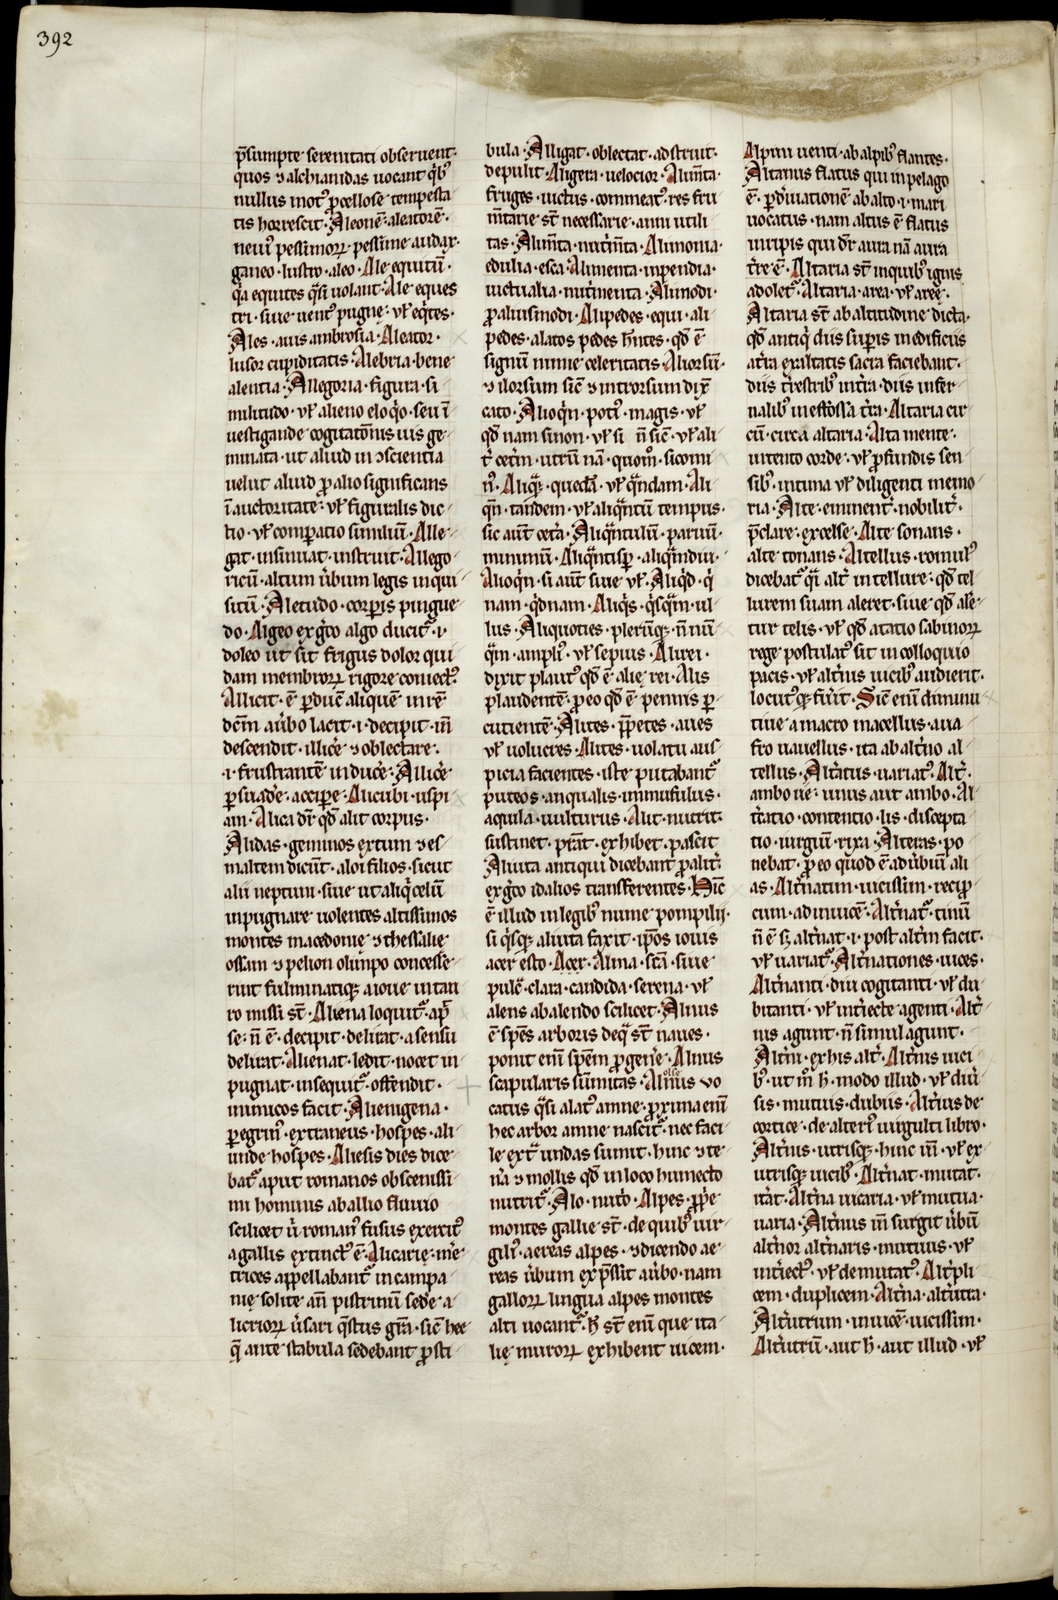 392
p̄sumpte serenitati obseruent·
quos ⁊ alchianidas uocant q̇bꝰ
nullus motꝰ p̱cellose tempesta
tis horrescit· Aleonē· aleatorē·
neuiꝰ pessimoꝝ· pessime audax·
ganeo· lustro· aleo· Ale equitū·
q̇a equites q̄si uolant· Ale eques
tri· siue uentꝰ pugne· uł eq̇tes·
Ales· auis ambrosia· Aleator·
lusor cupiditatis· Alebria· bene
alentia· Allegoria· figura· si
militudo· uł alieno eloq̇o· seu ī
uestigande cogitatōnis uis ge
minata· ut aliud in ɔscientia
uelut aliud p̱ alio significans
ī auctoritate· uł figuralis dic
tio· uł comparatio similiū· Alle
gat· insinuat· instruit· Allego
ricū· altum ūbum legis inqui
situ· Aletudo· corꝑis pingue
do· Algeo ex g̊co algo ducit᷑· i·
doleo ut sit frigus dolor qui
dam membroꝝ rigore coniectꝰ·
Allicit· ē ꝑduc̄e aliquē in rē
dcm̄ a ūbo lacit· i· decipit· in̄
descendit· illic̄e ⁊ oblectare·
·i· frustrantē induc̄e· Allic̄e
ꝑsuade· acciꝑe· Alicubi· uspi
am· Alica dr̄ qd̄ alit corpus·
Alidas· geminos extum ⁊ es
maltem dicūt· aloi filios· sicut
alii neptuni· siue ut aliq̇ celū
inpugnare uolentes altissimos
montes macedonie ⁊ thessalie
ossam ⁊ pelion olimpo concesse
rint fulminatiqꝫ a ioue in tau
ro missi st̄· Aliena loquit᷑· ap̄
se· n̄ ē· decipit· delirat· a sensu
delirat· Alienat· ledit· nocet in
pugnat· insequit᷑· offendit·
inimicos facit· Alienigena·
ꝑegrinꝰ· extraneus· hospes· ali
unde hospes· Aliesis dies dice
bat᷑ aput romanos obscenissi
mi hominis ab allio fluuio
scilicet ū romanꝰ fusus exercitꝰ
a gallis extinctꝰ ē· Alicarie· m̄e
trices appellabant᷑ in campa
nie solite an̄ pistrinū sede a
licrioꝝ ūsari q̄stus gr̄a· sic̄ hee
q̄ ante stabula sedebant p̱sti
bula· Alligat· oblectat· adstruit·
depulit· Aligera· uelocior· Alim̄ta·
fruges· uictus· commeatꝰ· res fru
m̄tarie st̄ necessarie· anni utili
tas· Alim̄ta· nut̊m̄ta· Alimonia·
edulia· esca· Alimenta· inpendia·
uictualia· nut̊menta· Alimodi·
p̱ aliusmodi· Alipedes· equi· ali
pedes· alatos pedes hn̄tes· qd̄ ē
signum nimie celeritatis· Alicrsū·
⁊ ilorsum sic̄ ⁊ introrsum dix̄
cato· Alioq̇n· potiꝰ· magis· uł
qd̄ nam sinon· uł si n̄ sic̄· uł ali
t̄ cet̄m· utrū nā· quom̊· sicomi
nꝰ· Aliqꝫ· quedā· uł q̄ndam· Ali
q̄n· tandem· uł aliq̄ntū tempus·
sic aut̄ cet̄a· Aliq̄ntulū· paruū·
minimū· Aliq̄ntisꝑ· aliq̄ndiu·
Alioq̇n· si aut̄ siue uł· Aliq̇d· q̇
nam· q̇dnam· Aliq̇s· q̇sq̄m· ul
lus· Aliquoties· plerūqꝫ· n̄ nū
q̄m· ampliꝰ· uł sepius· Alirei·
dixit plautꝰ qd̄ ē alie rei· Alis
plaudentē· p̱ eo qd̄ ē pennis ꝑ
cutientē· Alites· p̄petes· aues
uł uolucres· Alites· uolatu aus
picia facientes· iste putabant᷑
puteos· anqualis· immufulus·
aquila· uulturus· Alit· nutrit·
sustinet· pr̄at· exhibet· pascit
Aliuta antiqui dicebant p̱ alit̄·
ex g̊co idalios transferentes· Hīc
ē illud in legibꝰ nume pompilii·
si q̇sqꝫ aliuta faxit· ip̄os iouis
acer esto· Acer· Alma· scā· siue
pulc̄· clara· candida· serena· uł
alens ab alendo scilicet· Alnus
ē sp̄es arboris de q̄ st̄ naues·
ponit enī spēm p̱ gen̄e· Alnus
scapularis sūmitas· Alnius uo
catus q̄si alatꝰ amne· p̱xima enī
hec arbor amne nascit᷑· nec faci
le ext̄ undas sumit· hinc ⁊ te
n̄a ⁊ mollis qd̄ in loco humecto
nutrit᷑· Alo· nut̊o· Alpes· p̱p̄e
montes gallie st̄· de quibꝰ uir
giliꝰ· aereas alpes· ⁊ dicendo ae
reas ūbum exp̄ssit a ūbo· nam
galloꝝ lingua alpes montes
alti uocant᷑· h̄ st̄ enī que ita
lie muroꝝ exhibent uicem·
Alpini uenti· ab alpibꝰ flantes·
Altanus flatus qui in pelago
ē· ꝑ diriuationē ab alto· i· mari
uocatus· nam altus ē flatus
in ripis qui dr̄ aura nā aura
t̄re ē· Altaria st̄ in quibꝰ ignis
adolet᷑· Altaria· area· uł aree·
Altaria st̄ ab altitudine dicta·
qd̄ antiq̇ diis suꝑis in edificiis
a t̄ra exaltatis sacra faciebant·
diis t̄restribꝰ in t̄ra· diis infer
nalibꝰ in effossa t̄ra· Altaria cir
cū· circa altaria· Alta mente·
intento corde· uł p̱fundis sen
sibꝰ· intima uł diligenti memo
ria· Alte· eminent̄· nobilit̄·
p̄clare· excelse· Alte sonans·
alte tonans· Altellus· romulꝰ
dicebat᷑ q̄i alt̄ in tellure· qd̄ tel
lurem suam aleret· siue qd̄ ale
tur telis· uł qd̄ a tatio sabinoꝝ
rege postulatꝰ sit in colloquio
pacis· uł alt̄nis uicibꝰ audierit·
locutꝰqꝫ fu̇it· Sic̄ enī diminu
tiue a macro macellus· a ua
fro uauellus· ita ab alt̄no al
tellus· Alt̄atus· uariatꝰ· Alt̄·
ambo ue· unus aut ambo· Al
t̄catio· contentio· lis· discepta
tio· iurgiū· rixa· Alteras· po
nebat· p̱ eo quod ē ad ūbiū ali
as· Alt̄natim· uicissim· recip̱
cum· ad inuicē· Alt̄nat᷑· t̄nnū
n̄ ē sꝫ alt̄nat· i· post alt̄m facit·
uł uariat᷑· Alt̄nationes· uices·
Alt̄nanti· diu cogitanti· uł du
bitanti· uł int̄iecte agenti· Alt̄
nis agunt· n̄ simul agunt·
Alt̄ni· ex his alt̄· Alt̄nis uici
bꝰ· ut m̊ h̄· modo illud· uł diū
sis· mutuis· dubiis· Alt̄ius de
cortice· de alteriꝰ uirgulti libro·
Alt̄nis· utrisqꝫ· hinc in̄· uł ex
utrisqꝫ uicibꝰ· Alt̄nat· mutat·
it̄at· Alt̄na uicaria· uł mutua·
uaria· Alt̄nus in̄ surgit ūbū
alt̄nor alt̄naris· mutuus· uł
int̄iectꝰ· uł demutatꝰ· Alt̄pli
cem· duplicem· Alt̄na· alt̄utra·
Alt̄utrum· inuicē· uicissim·
Alt̄utrū· aut h̄· aut illud· uł